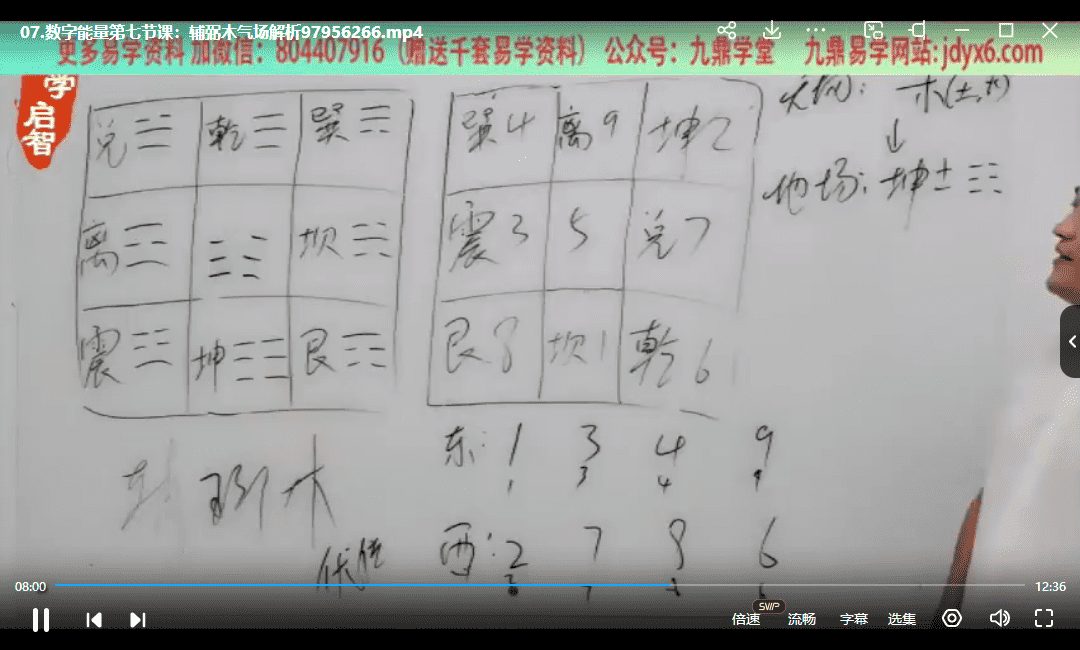 07.数字能量第七节课：辅弼木气场解析97956266.mp4
更多易学资料 加微信：804407916（赠送千套易学资料） 公众号：九鼎学堂 九鼎易学网站：jdyx6.com
学启智
兑☱ 乾☰ 巽☴
离☲ ☷ 坎☵
震☳ 坤☷ 艮☶
巽4 离9 坤2
震3 5 兑7
艮8 坎1 乾6
木(土,
↓
地场：坤土☷
木
东：1 3 4 9
1 3 4 9
西：2 7 8 6
2 7 8 6
08:00
12:36
SVIP
倍速 流畅 字幕 选集